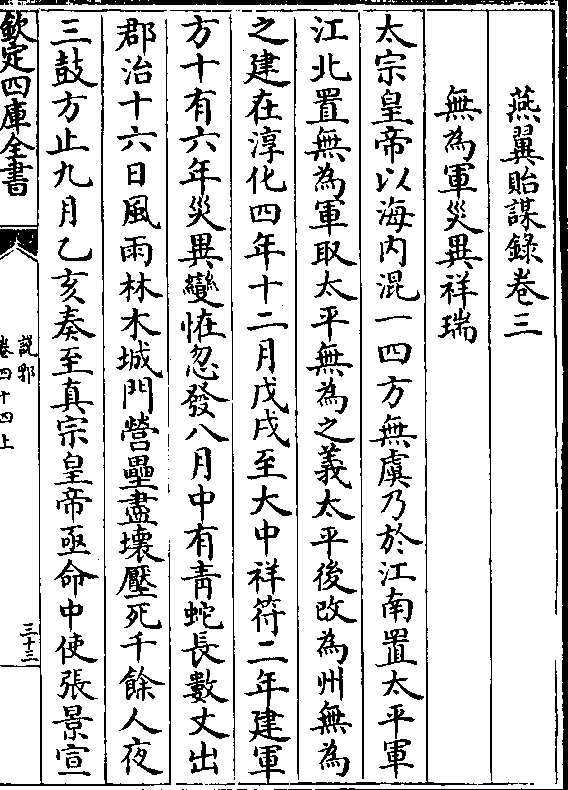 燕翼貽謀錄卷三
無為軍災異祥瑞
太宗皇帝以海内混一四方無虞乃於江南置太平軍
江北置無為軍取太平無為之義太平後改為州無為
之建在淳化四年十二月戊戌至大中祥符二年建軍
方十有六年災異變怪忽發八月中有青蛇長數丈出
郡治十六日風雨林木城門營壘盡壞壓死千餘人夜
三鼓方止九月乙亥奏至真宗皇帝亟命中使張景宣
欽定四庫全書
說郛
卷四十四上
三十三